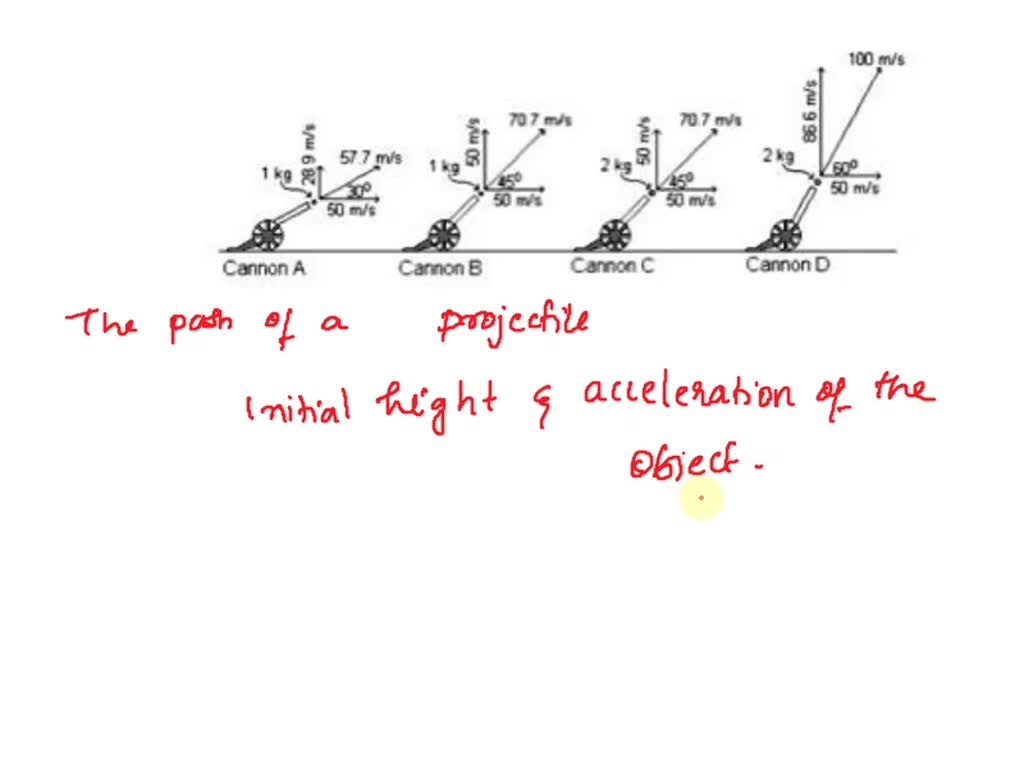 100 m/s
86.6 m/s
70.7 m/s
70.7 m/s
50 m/s
50 m/s
28.9 m/s
57.7 m/s
1 kg
1 kg
2 kg
2 kg
30°
45°
45°
60°
50 m/s
50 m/s
50 m/s
50 m/s
Cannon A
Cannon B
Cannon C
Cannon D
The path of a projectile
initial height & acceleration of the
object.